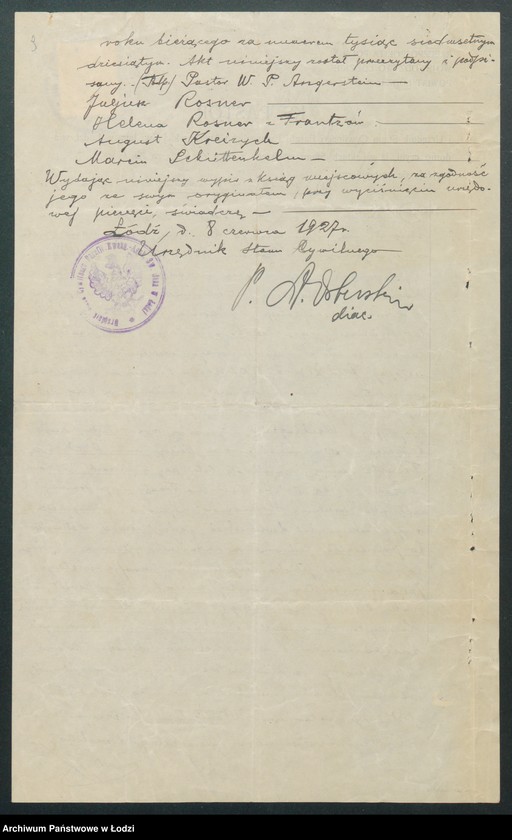 3
roku bieżącego za numerem tysiąc siedmsetnym
dziesiątym. Akt niniejszy został przeczytany i podpi-
sany. Pastor W. P. Angerstein —
Juljusz Rosner
Helena Rosner z Frantzów
August Kreizych
Marcin Schüttenhelm —
Wydając niniejszy wypis z ksiąg miejscowych, za zgodność
jego ze swym oryginałem, przy wyciśnięciu urzędo-
wej pieczęci, świadczę —
Łódź, d. 8 czerwca 1927 r.
Urzędnik Stanu Cywilnego
diac.
Archiwum Państwowe w Łodzi